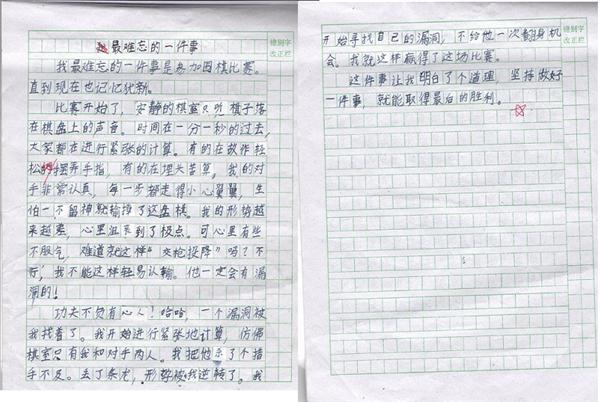 最难忘的一件事
错别字
改正栏
我最难忘的一件事是参加围棋比赛。
直到现在也记忆犹新。
比赛开始了，安静的棋室只听棋子落
在棋盘上的声音。时间在一分一秒的过去，
大家都在进行紧张的计算。有的在故作轻
松的摆弄手指，有的在埋头苦算。我的对
手非常认真，每一步都走得小心翼翼，生
怕一不留神就输掉了这盘棋。我的形势越
来越差，心里沮丧到了极点。可心里有些
不服气，难道就这样“交枪投降”吗？不
行，我不能这样轻易认输。他一定会有漏
洞的！
功夫不负有心人！哈哈，一个漏洞被
我找着了。我开始进行紧张地计算，仿佛
棋室只有我和对手两人。我把他杀了个措
手不及。丢了条龙，形势被我逆转了。我
错别字
改正栏
开始寻找自己的漏洞，不给他一次翻身机
会。我就这样赢得了这场比赛。
这件事让我明白了个道理，坚持做好
一件事，就能取得最后的胜利。